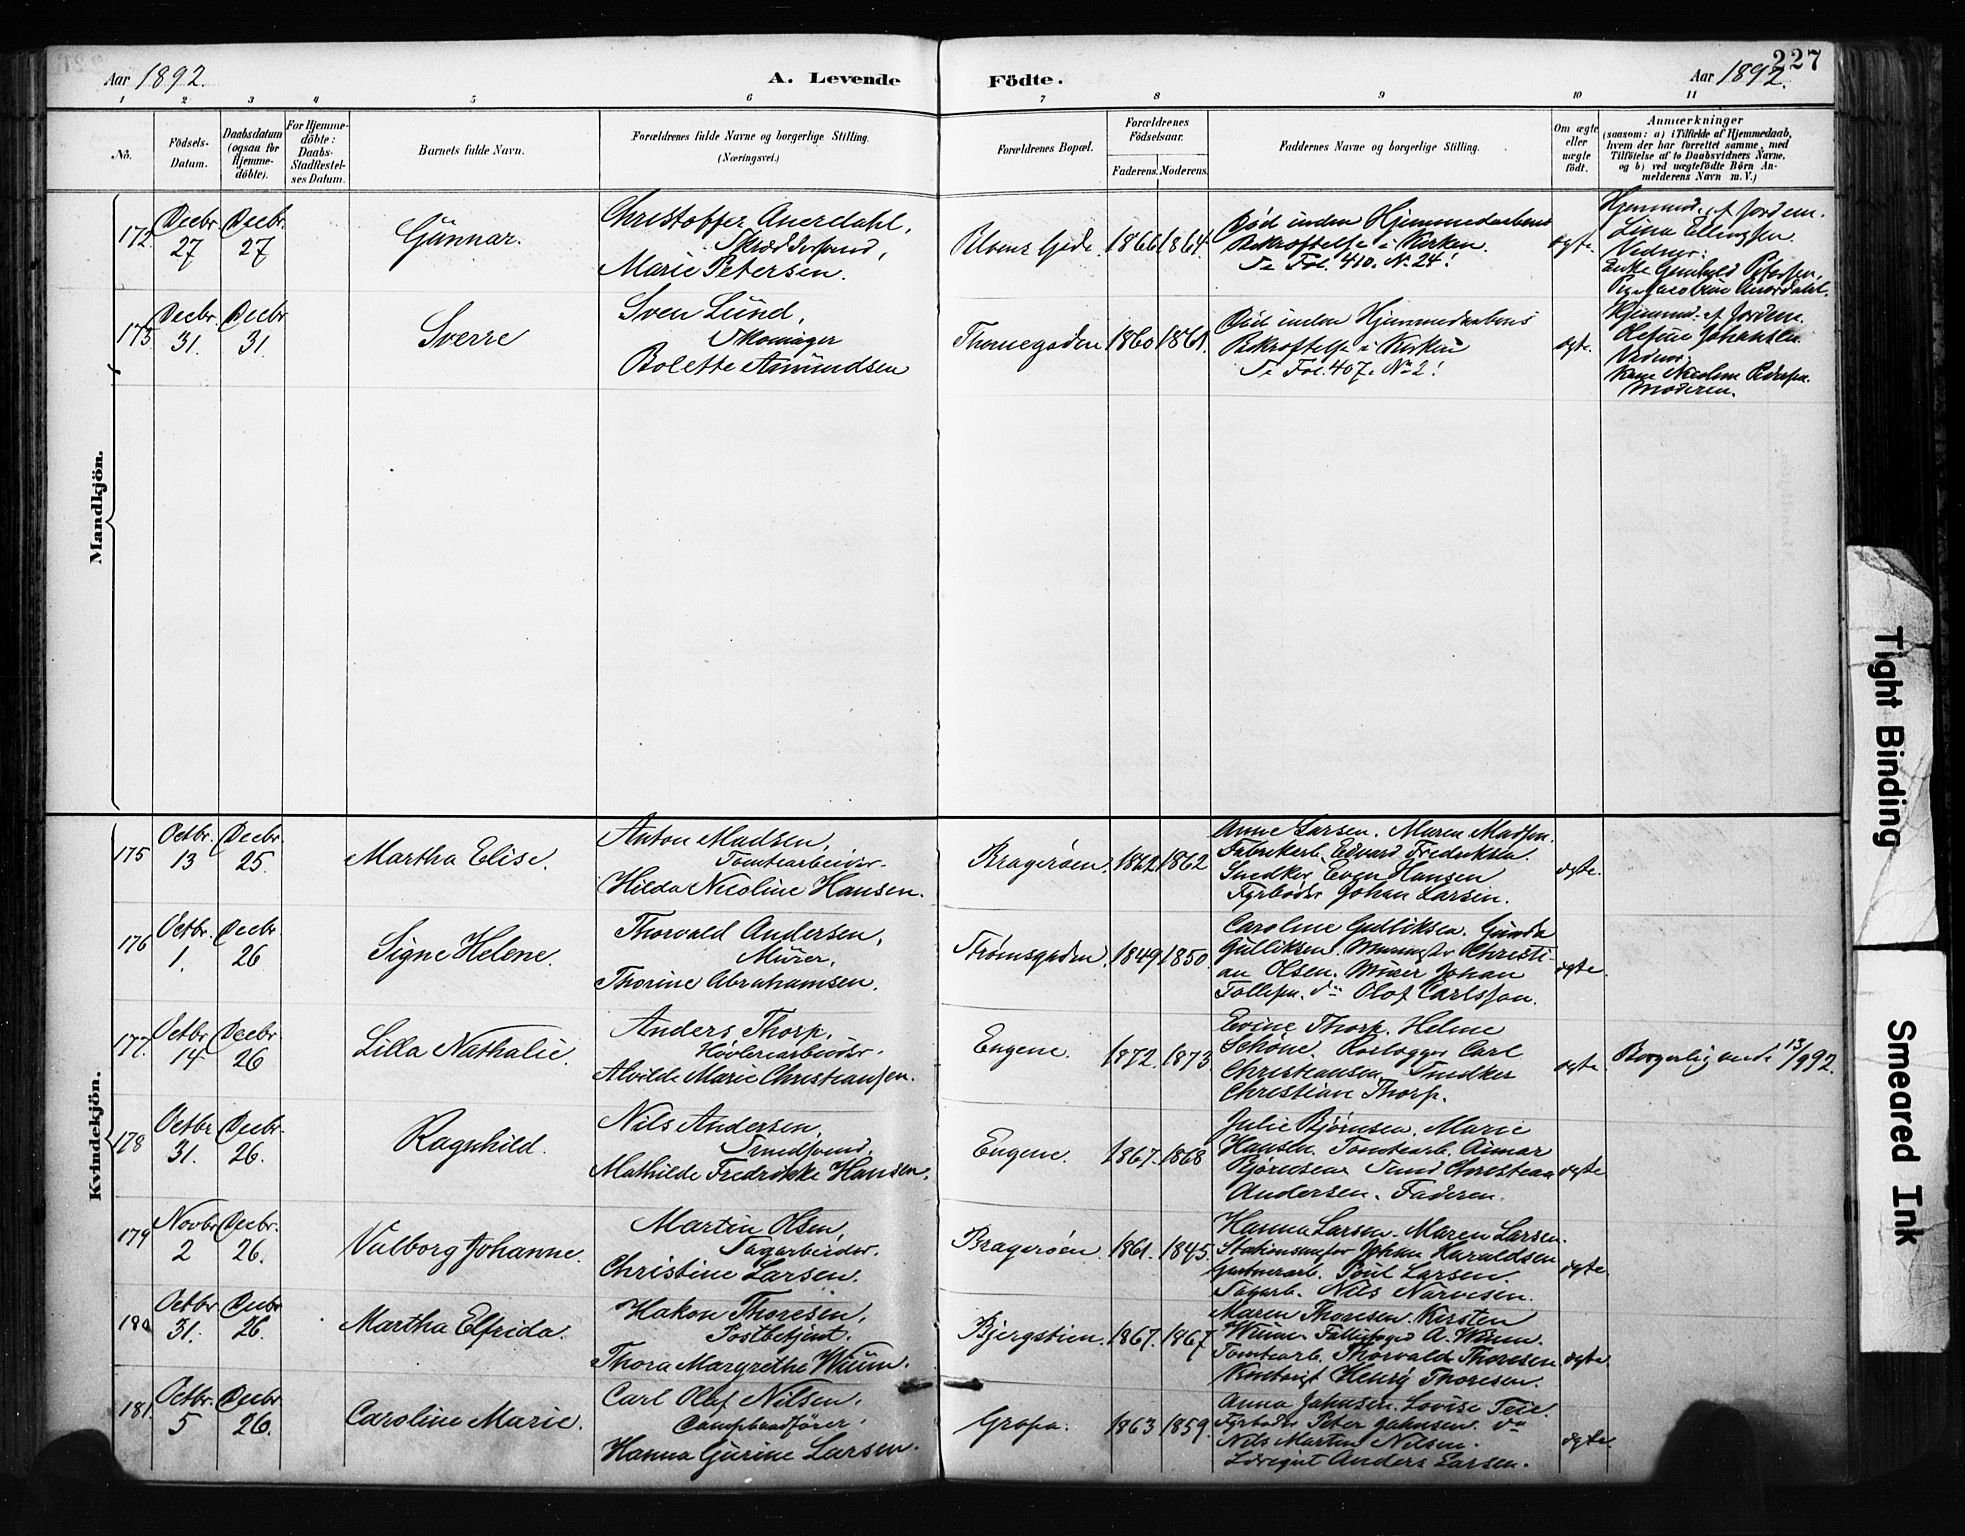 227
Aar 1892. A. Levende Födte. Aar 1892.
1 2 3 4 5 6 7 8 9 10 11
No.
Födsels-Datum.
Daabsdatum (ogsaa for Hjemme-döbte).
For Hjemme-döbte: Daabs-Stadfæstel-ses Datum.
Barnets fulde Navn.
Forældrenes fulde Navne og borgerlige Stilling.
(Næringsvei.)
Forældrenes Bopæl.
Forældrenes Födselsaar.
Faderens. Moderens.
Faddernes Navne og borgerlige Stilling.
Om ægte eller uægte födt.
Anmærkninger
(saasom: a) i Tilfælde af Hjemmedaab,
hvem der har forrettet samme, med
Tilföielse af to Daabsvidners Navne,
og b) ved uægtefödte Börn An-
melderens Navn m. V.)
Mandkjön.
172 Decbr. 27 Decbr. 27 Gunnar.
Christoffer Anerdahl,
Skræddersvend,
Marie Petersen.
Gade. 1866 1864
Död inden Hjemmedaabens
Bekræftelse i Kirken.
Se Fol. 410. No 24!
ægte.
Hjemmed. af Jordem.
Lina Ellingsen.
Vidner:
Enke Petersen,
Pige Jacobine Anerdahl.
173 Decbr. 31. Decbr. 31. Sverre
Sven Lund,
Skomager
Bolette Amundsen
Thornegaden 1860 1861.
Död inden Hjemmedaabens
Bekræftelse i Kirken
Se Fol. 407. No 2!
ægte.
Hjemmed. af Jordem.
Olefine Johansen
Vidner:
Kone Nicoline Pedersen.
Moderen.
Kvindekjön.
175 Octbr. 13 Decbr. 25. Martha Elise.
Anton Madsen,
Tomtearbeider.
Hilda Nicoline Hansen.
Bragerøen. 1862 1862
Anne Larsen. Maren Madsen.
Fabrikarb. Edvard Fredriksen.
Snedker Even Hansen
Fyrböder Johan Larsen.
ægte.
176 Octbr. 1. Decbr. 26 Signe Helene.
Thorvald Andersen,
Murer,
Thorine Abrahamsen.
Strømsgaden. 1849 1850.
Caroline Gulliksen. Gunda
Gulliksen. Murmester Christi-
an Olsen. Murer Johan
Tollefsen. do Olof Carlsson.
ægte.
177. Octbr 14 Decbr. 26 Lilla Nathalie.
Anders Thorp.
Høvleriarbeider.
Alvilde Marie Christiansen.
Engene. 1872. 1873
Evine Thorp. Helene
Schöne. Carl
Christiansen. Snedker
Christian Thorp.
ægte. Borgerlig viede 13/9 92.
178 Octbr 31. Decbr. 26. Ragnhild.
Nils Andersen,
Smedsvend,
Mathilde Fredrikke Hansen.
Engene. 1867. 1868
Julie Bjørnsen. Marie
Hansen. Tomtearb. Aimar
Bjørnsen. Smed Christian
Andersen. Faderen.
ægte.
179 Novbr 2 Decbr. 26. Valborg Johanne.
Martin Olsen,
Sagarbeider.
Christine Larsen.
Bragerøen. 1861. 1845.
Hanna Larsen. Maren Larsen.
Johan Haraldsen
Gartnerarb. Poul Larsen.
Sagarb. Nils Narvesen.
ægte.
180 Octbr 31. Decbr 26. Martha Elfrida.
Hakon Thoresen,
Postbetjent.
Thora Margrethe Wium.
Bjergstien. 1867. 1867
Maren Thoresen. Kirsten
Wium. A. Wium.
Tomtearb. Thorvald Thoresen
Kontorist Henry Thoresen.
ægte.
181. Octbr. 5 Decbr. 26. Caroline Marie.
Carl Olaf Nilsen,
Dampbaadförer.
Hanna Gurine Larsen.
Gropa. 1863 1859.
Anna Jahnsen. Lovise Teie.
Fyrböder Peter Jahnsen. do
Nils Martin Nilsen.
Anders Larsen.
ægte.
Tight Binding
Smeared Ink